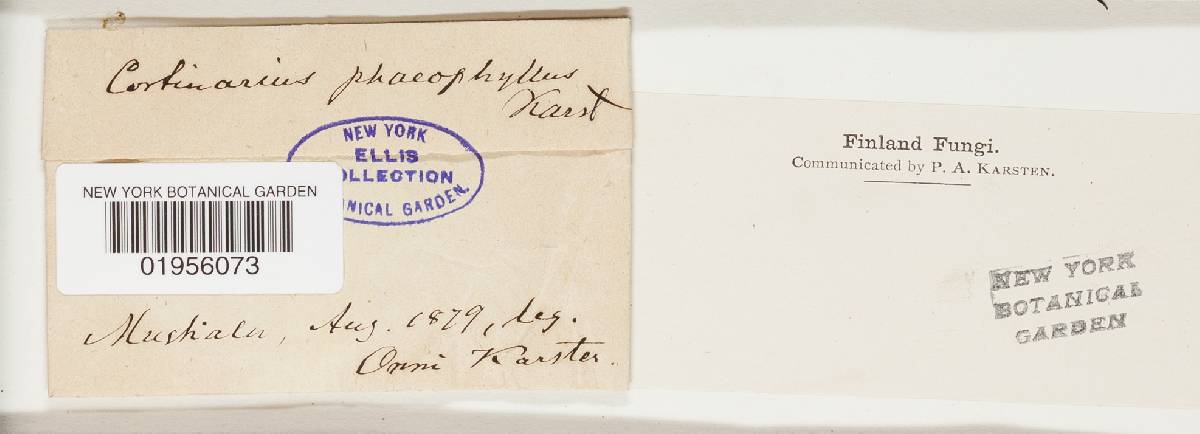 Cortinarius phaeophyllus
Karst
NEW YORK
ELLIS
OLLECTION
NICAL GARDEN.
NEW YORK BOTANICAL GARDEN
01956073
Mustiala, Aug. 1879, leg.
Onni Karsten.
Finland Fungi.
Communicated by P. A. KARSTEN.
NEW YORK
BOTANICAL
GARDEN